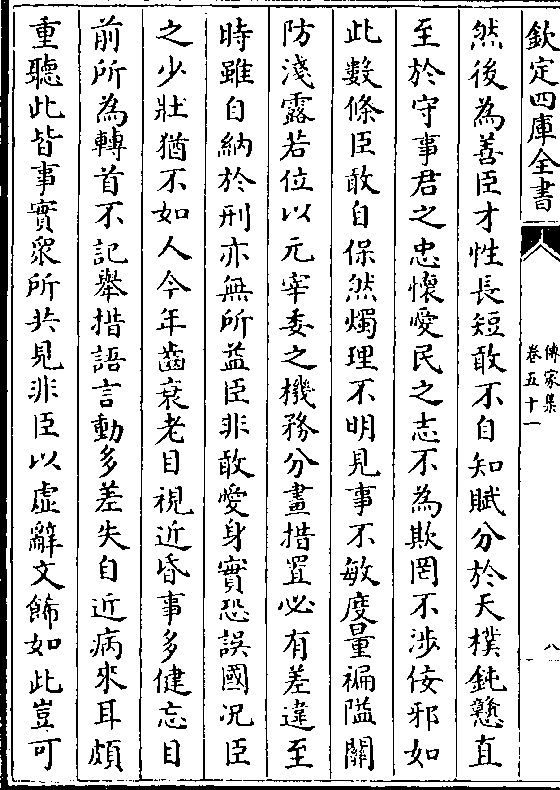 欽定四庫全書
傳家集
卷五十一
八
然後為善臣才性長短敢不自知賦分於天樸鈍戇直
至於守事君之忠懷愛民之志不為欺罔不涉佞邪如
此數條臣敢自保然燭理不明見事不敏度量褊隘關
防淺露若位以元宰委之機務分畫措置必有差違至
時雖自納於刑亦無所益臣非敢愛身實恐誤國况臣
之少壯猶不如人今年齒衰老目視近昏事多健忘目
前所為轉首不記舉措語言動多差失自近病來耳頗
重聽此皆事實衆所共見非臣以虛辭文飾如此豈可